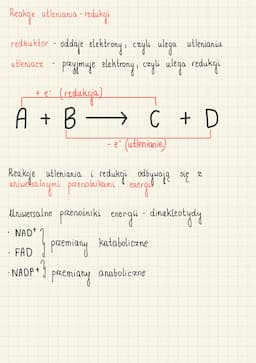 Reakcje utleniania-redukcji
redkuktor - oddaje elektrony, czyli ulega utlenianiu
utleniacz - przyjmuje elektrony, czyli ulega redukcji
+ e⁻ (redukcja)
A + B ⟶ C + D
- e⁻ (utlenianie)
Reakcje utleniania i redukcji odbywają się z
uniwersalnymi przenośnikami energii
Uniwersalne przenośniki energii - dinukleotydy
· NAD⁺
· FAD
przemiany kataboliczne
· NADP⁺ } przemiany anaboliczne